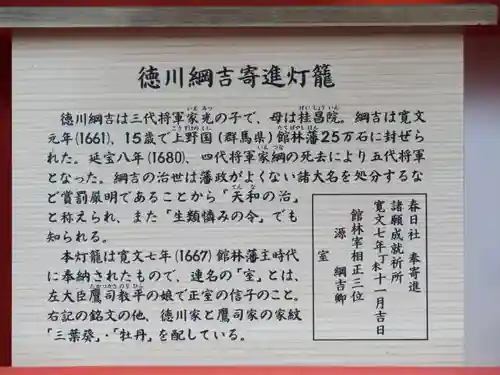 徳川綱吉寄進灯籠
徳川綱吉は三代将軍家光の子で、母は桂昌院。綱吉は寛文
元年(1661)、15歳で上野国(群馬県)館林藩25万石に封ぜら
れた。延宝八年(1680)、四代将軍家綱の死去により五代将軍
となった。綱吉の治世は藩政がよくない諸大名を処分するな
ど賞罰厳明であることから「天和の治」
と称えられ、また「生類憐みの令」でも
知られる。
本灯籠は寛文七年(1667)館林藩主時代
に奉納されたもので、連名の「室」とは、
左大臣鷹司教平の娘で正室の信子のこと。
右記の銘文の他、徳川家と鷹司家の家紋
「三葉葵」・「牡丹」を配している。
春日社 奉寄進
諸願成就祈所
寛文七年丁未十一月吉日
館林宰相正三位
源 綱吉卿
室